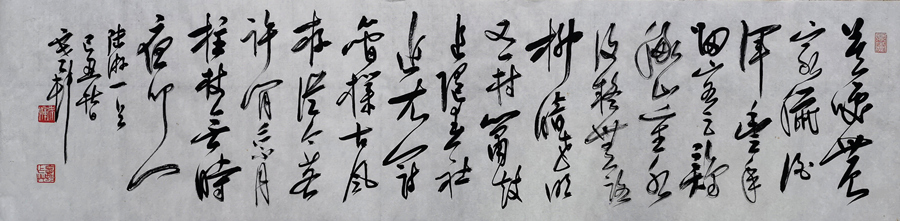 莫笑農
家臘酒
渾豐年
留客足雞
豚山重水
復疑無路
柳暗花明
又一村簫鼓
追隨春社
近衣冠
簡樸古風
存從今若
許閒乘月
拄杖無時
夜叩門
陸游一首
己丑秋